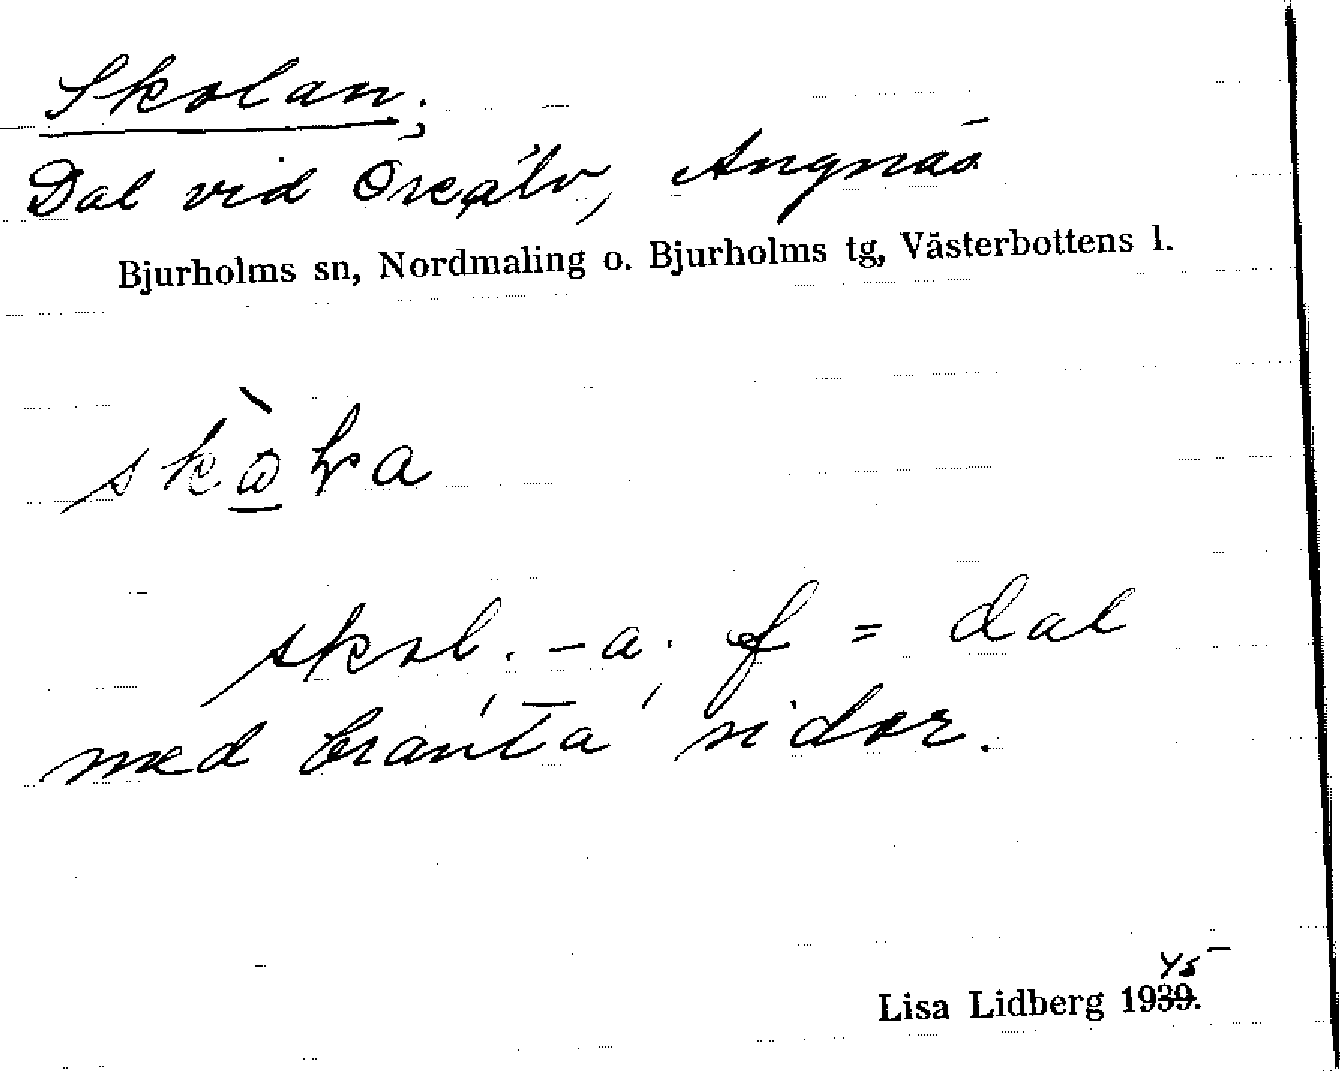 Skolan;
Dal vid Öreälv, Ängnäs
Bjurholms sn, Nordmaling o. Bjurholms tg, Västerbottens l.
skol. -a. f = dal
med branta sidor.
45
Lisa Lidberg 1939.